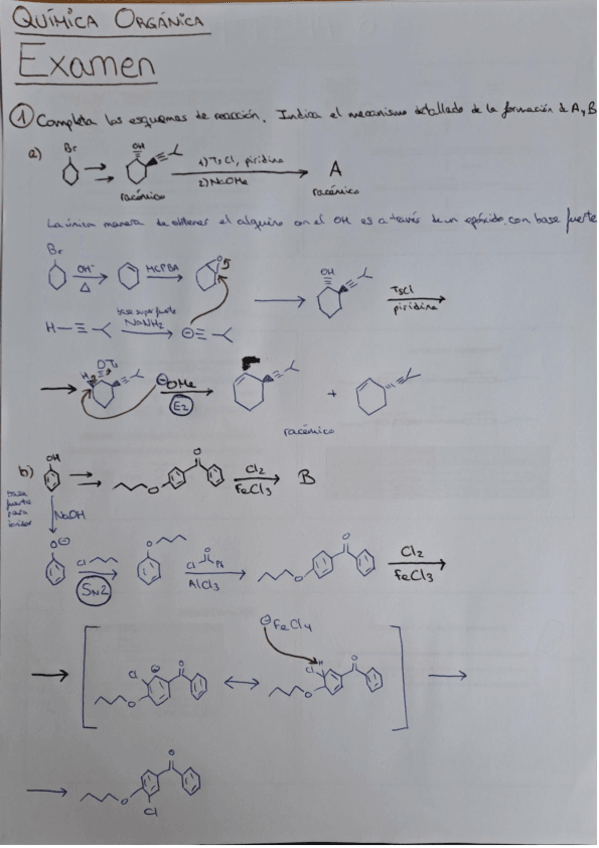 QUÍMICA ORGÁNICA
Examen
① Completa los esquemas de reacción. Indica el mecanismo detallado de la formación de A y B
a)
Br
OH
1) TsCl, piridina
2) NaOMe
A
racémico
racémico
La única manera de obtener el alquino con el OH es a través de un epóxido, con base fuerte
Br
OH⁻
Δ
MCPBA
O
OH
TsCl
piridina
H
base super fuerte
NaNH₂
⊖
H
OTs
⊖OMe
E2
+
racémico
b)
OH
O
O
Cl₂
FeCl₃
B
base fuerte para ionizar
NaOH
O⊖
Cl
SN2
O
Cl
O
Ph
AlCl₃
O
O
Cl₂
FeCl₃
⊖FeCl₄
Cl
⊕
O
O
Cl
H
O
O
O
O
Cl